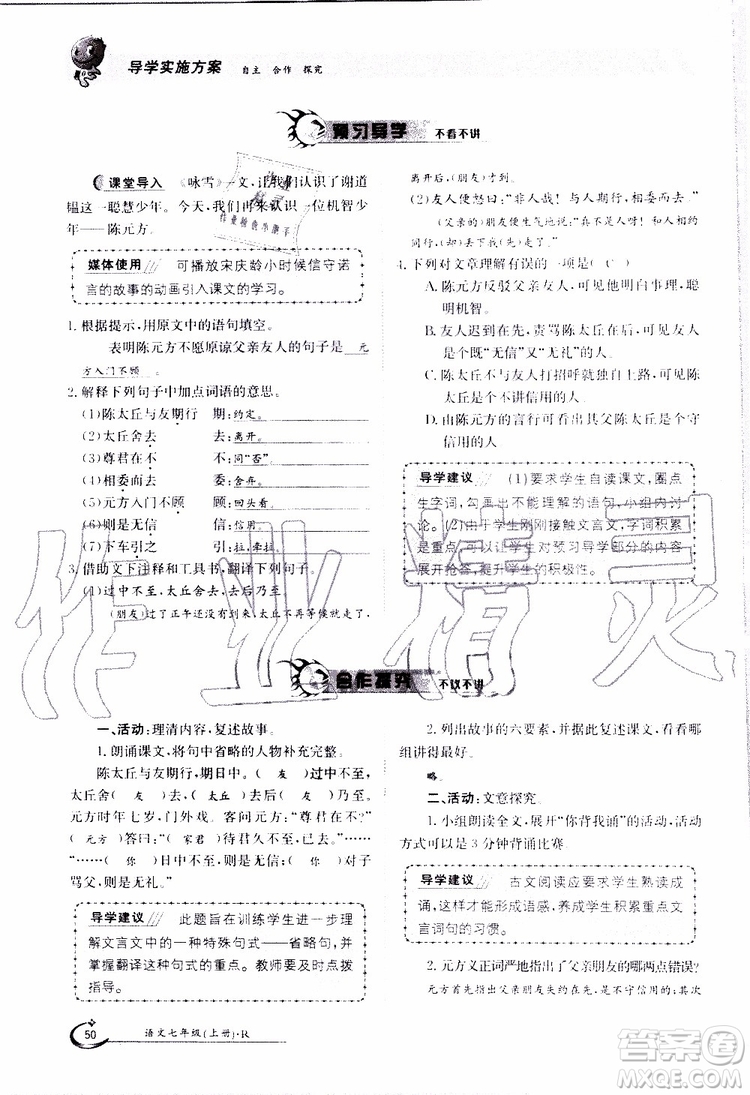 导学实施方案 自主 合作 探究
预习导学 不看不讲
课堂导入 《咏雪》一文,让我们认识了谢道
韫这一聪慧少年。今天,我们再来认识一位机智少
年——陈元方。
媒体使用 可播放宋庆龄小时候信守诺
言的故事的动画引入课文的学习。
1. 根据提示,用原文中的语句填空。
表明陈元方不愿原谅父亲友人的句子是 元
方入门不顾 。
2. 解释下列句子中加点词语的意思。
(1)陈太丘与友期行 期:约定。
(2)太丘舍去 去:离开。
(3)尊君在不 不:同“否”。
(4)相委而去 委:舍弃。
(5)元方入门不顾 顾:回头看。
(6)则是无信 信:信用。
(7)下车引之 引:拉,牵拉。
3. 借助文下注释和工具书,翻译下列句子。
(1)过中不至,太丘舍去,去后乃至。
(朋友)过了正午还没有到,太丘离开了,太丘
离开后,(朋友)才到。
(2)友人便怒曰:“非人哉!与人期行,相委而去。”
(父亲的)朋友便生气地说:“真不是人啊!和别人相约同行,却丢下我(先)走了。”
4. 下列对文章理解有误的一项是( C )
A. 陈元方反驳父亲友人,可见他明白事理,聪
明机智。
B. 友人迟到在先,责骂陈太丘在后,可见友人
是既“无信”又“无礼”的人。
C. 陈太丘没有与友人打招呼就独自上路,可见陈
太丘是个不讲信用的人。
D. 由陈元方的言行可看出其父陈太丘是个守
信用的人
导学建议 (1)要求学生自读课文,圈点
生字词,勾画出不能理解的语句,小组内讨
论。(2)由于学生刚刚接触文言文,字词积累
是重点,可以让学生对预习导学部分的内容
展开抢答,提升学生的积极性。
合作探究 不议不讲
一、活动:理清内容,复述故事。
1. 朗诵课文,将句中省略的人物补充完整。
陈太丘与友期行,期日中。( 友 )过中不至,
太丘舍( 友 )去,( 太丘 )去后( 友 )乃至。
元方时年七岁,门外戏。客问元方:“尊君在不?”
( 元方 )答曰:“( 家君 )待君久不至,已去。”……
“……( 你 )日中不至,则是无信;( 你 )对子
骂父,则是无礼。”
导学建议 此题旨在训练学生进一步理
解文言文中的一种特殊句式——省略句,并
掌握翻译这种句式的重点。教师要及时进行
指导。
2. 列出故事的六要素,并据此复述课文,看看哪
组讲得最好。
略。
二、活动:文意探究。
1. 小组朗读全文,展开“你背我诵”的活动,活动
方式可以是3分钟背诵比赛
导学建议 古文阅读应要求学生熟读成
诵,这样才能形成语感,养成学生积累重点文
言词句的习惯。
2. 元方义正词严地指出了父亲朋友的哪两点错误?
元方首先指出父亲朋友不守信用,其次指出父亲朋友
没有礼貌。
50 语文七年级(上册)·R
作业精灵
答案圈